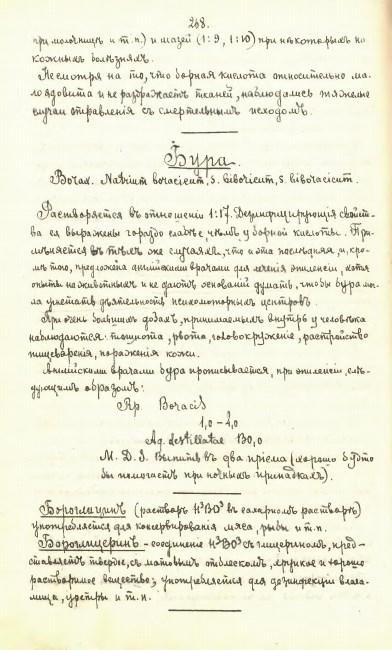 268.
при молочницѣ и т.п.) и мазей (1:9, 1:10) при нѣкоторыхъ на
кожныхъ болѣзняхъ.
Несмотря на то, что борная кислота относительно ма-
лоядовита и не раздражаетъ тканей, наблюдались тяжелые
случаи отравленія съ смертельнымъ исходомъ.
Бура.
Borax. Natrium boracicum, s. biboricum, s. biboracicum.
Растворяется въ отношеніи 1:17. Дезинфицирующія свойст-
ва ея выражены гораздо слабѣе, чѣмъ у борной кислоты. При-
мѣняется въ тѣхъ же случаяхъ, что и эта послѣдняя, и, кро-
мѣ того, предложена англійскими врачами для леченія эпилепсіи, хотя
опытъ на животныхъ и не даютъ основаній думать, чтобы бура мог-
ла угнетать дѣятельность психомоторныхъ центровъ.
При очень большихъ дозахъ, принимаемыхъ внутрь у человѣка
наблюдаются: тошнота, рвота, головокруженіе, разстройство
пищеваренія, пораженія кожи.
Англійскими врачами бура прописывается, при эпилепсіи, слѣ-
дующимъ образомъ:
Rp. Boracis
1,0 –
Aq. destillatae
M. D. S. Выпить въ два пріема (хорошо будто
бы помогаетъ при ночныхъ припадкахъ).
Бороглацинъ (растворъ H³BO³ въ сахарномъ растворѣ)
употребляется для консервированія мяса, рыбы и т.п.
Бороглицеринъ – соединеніе H³BO³ съ глицериномъ, пред-
ставляетъ твердое, съ матовымъ отблескомъ, хрупкое и хорошо
растворимое вещество; употребляется для дезинфекціи влага-
лища, уретры и т. п.